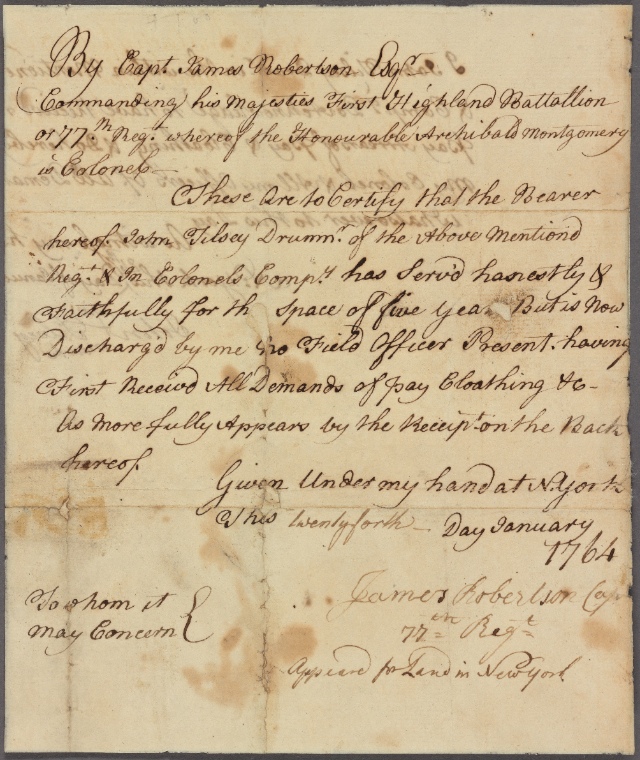 By Capt James Robertson Esqr.
Commanding his Majesties First Highland Battallion
or 77.th Regt whereof the Honourable Archibald Montgomery
is Colonel
These Are to Certify that the Bearer
hereof John Tilsey Drummr. of the Above Mention'd
Regt & In Colonels Compy has Serv'd honestly &
Faithfully for th space of five yea But is Now
Discharg'd by me no Field Officer Present. having
First Receiv'd All Demands of pay Cloathing &c
As More fully Appears by the Receipt on the Back
hereof
Given Under my hand at N. York
This twentyforth Day January
1764
James Robertson Cap
77th Regt
To whom it
May Concern
Appeard for Land in New York